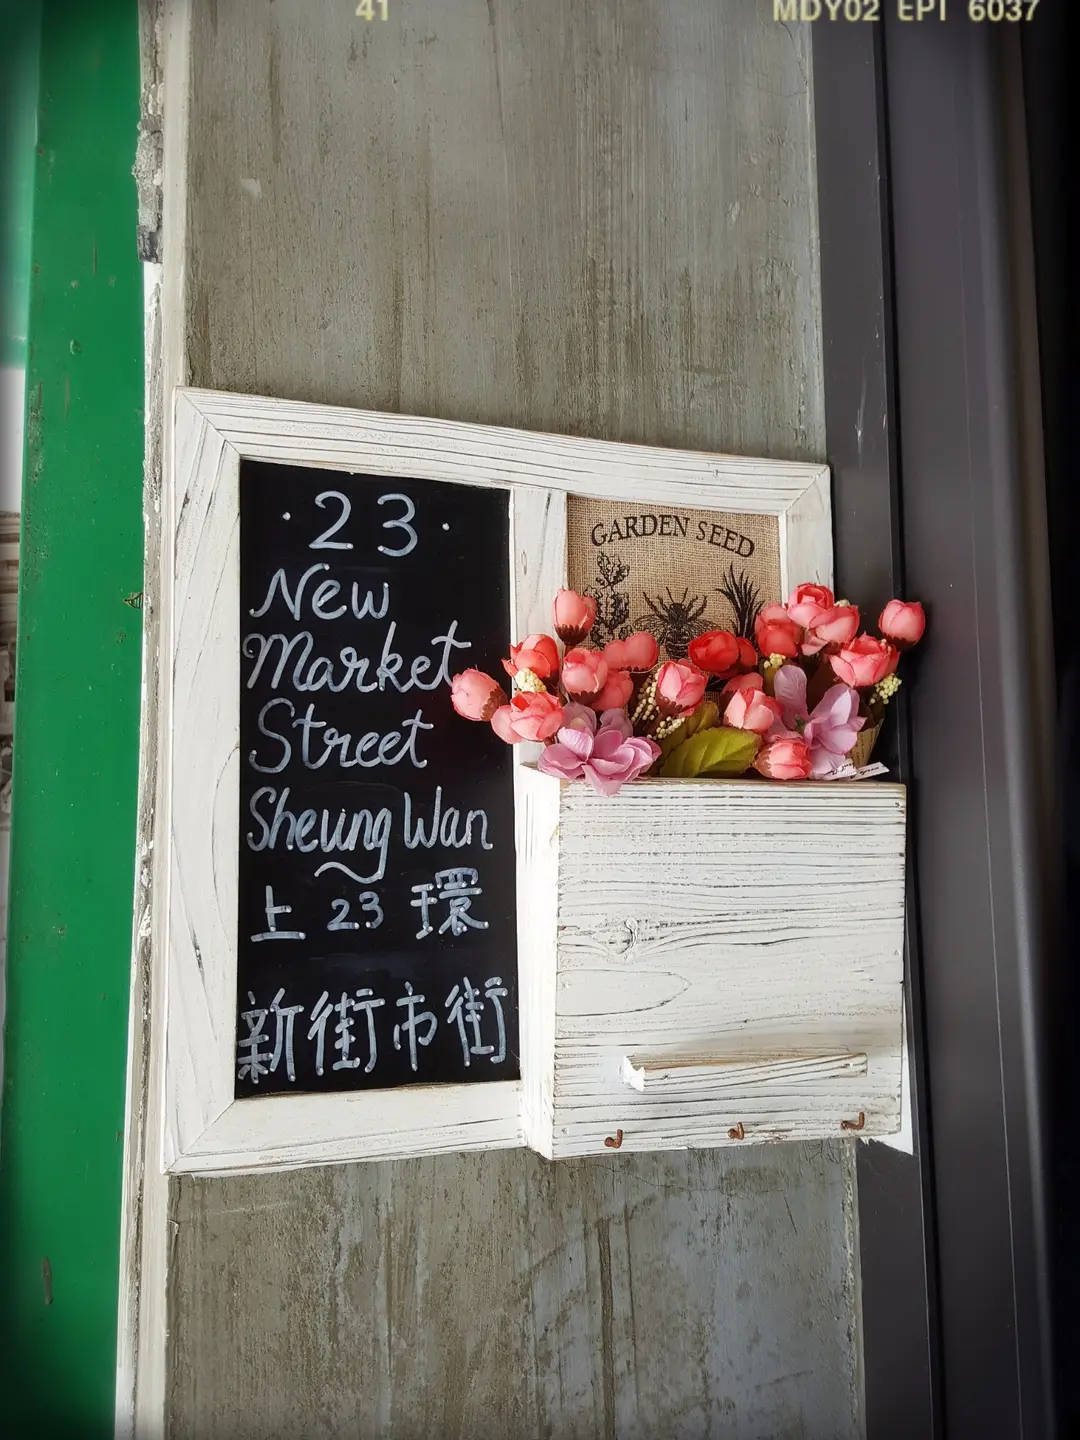 41 MDY02 EPI 6037
· 23 ·
New
Market
Street
Sheung Wan
上 23 環
新街市街
GARDEN SEED